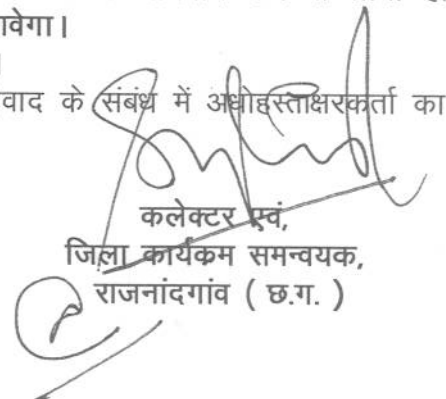 ावेगा।
वाद के संबंध में अधोहस्ताक्षरकर्ता का
कलेक्टर एवं,
जिला कार्यक्रम समन्वयक,
राजनांदगांव ( छ.ग. )